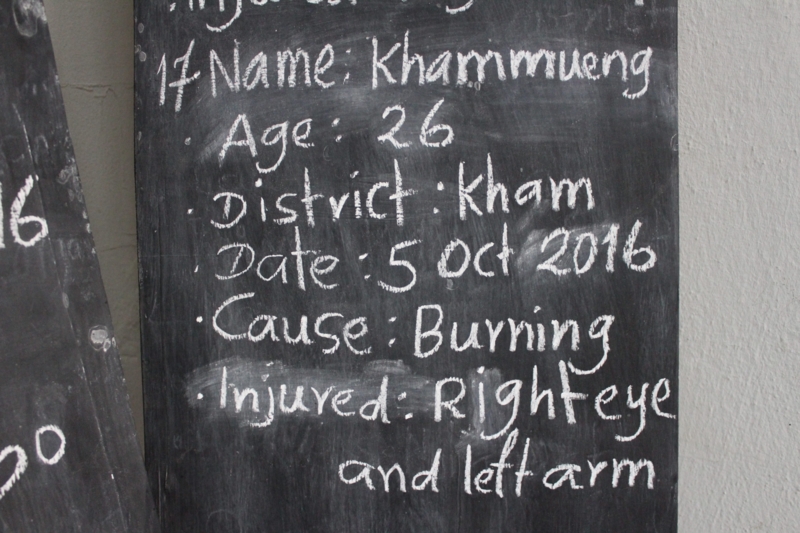 17 Name: Khammueng
· Age: 26
· District: Kham
· Date: 5 Oct 2016
· Cause: Burning
· Injured: Right eye
and left arm
16